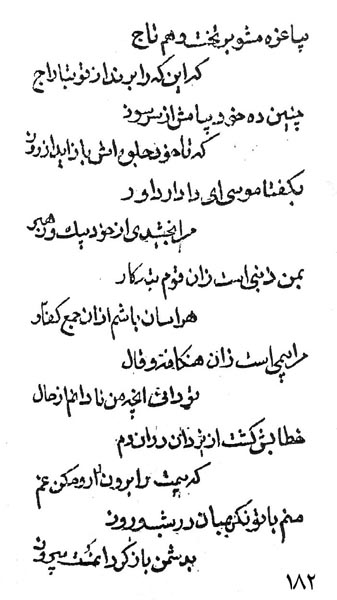 بپا غره مشو بر تخت و هم تاج
که این که را برند از تو بتاراج
چنین ده خود پیامش از سر سوز
که تا خود جلوه اش باز اید از روز
بگفتا موسی ای دادار داور
مرا بخشیدی از خود نیک و رهبر
بمن دینی است زان قوم تبه کار
هراسان باشم از ان جمع کفتار
مرا بیمی است زان هنگامه و قال
تو دانی انچه من نادانم از حال
خطابش گشت از یزدان در ان دم
که بیمت را برون ار و مکن غم
منم با تو نگهبان در شب و روز
بدشمن باز گردانمت پیروز
۱۸۲